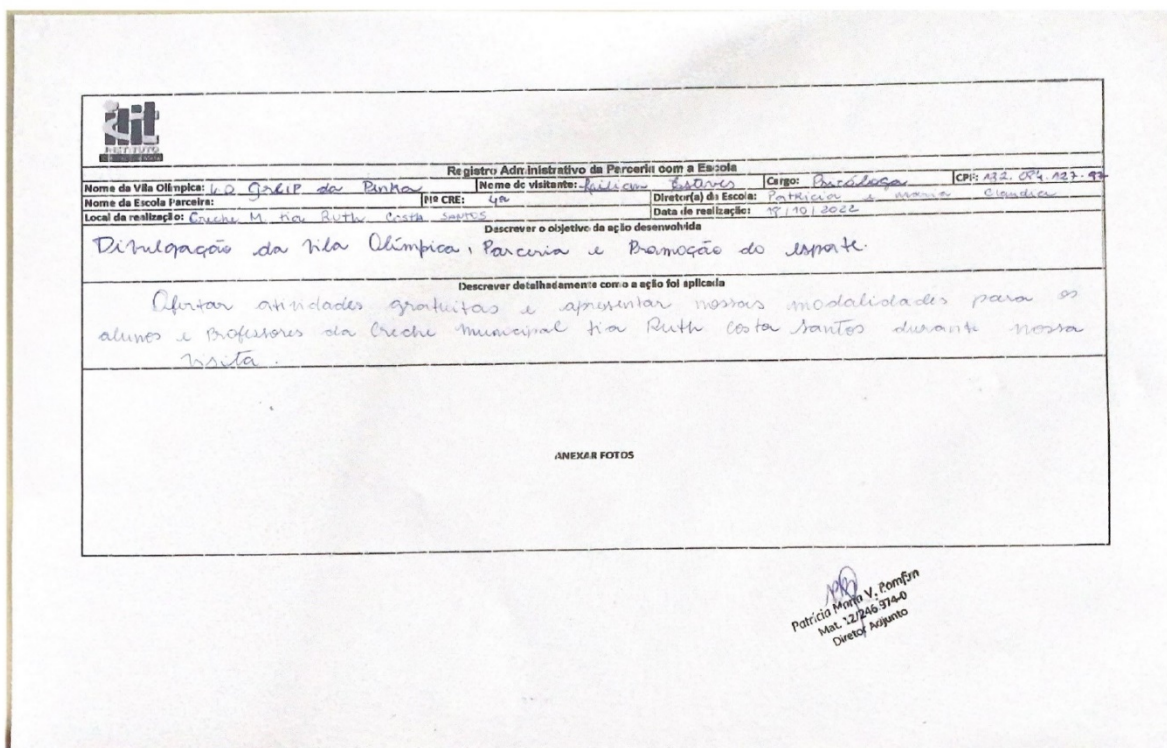 INSTITUTO
Registro Administrativo da Parceria com a Escola
Nome da Vila Olímpica: V.O Greip da Penha Nome do visitante: Esteves Cargo: Psicóloga CPF:
Nome da Escola Parceira: Nº CRE: 4a Diretor(a) da Escola: Patricia e Maria Claudia
Local da realização: Creche M. tia Ruth Costa Santos Data de realização: 18/10/2022
Descrever o objetivo da ação desenvolvida
Divulgação da Vila Olímpica, Parceria e Promoção do esporte.
Descrever detalhadamente como a ação foi aplicada
Ofertar atividades gratuitas e apresentar nossas modalidades para os
alunos e Professores da Creche Municipal tia Ruth Costa Santos durante nossa
visita.
ANEXAR FOTOS
Patrícia Maria V. Bomfim
Mat. 12/246.974-0
Diretor Adjunto